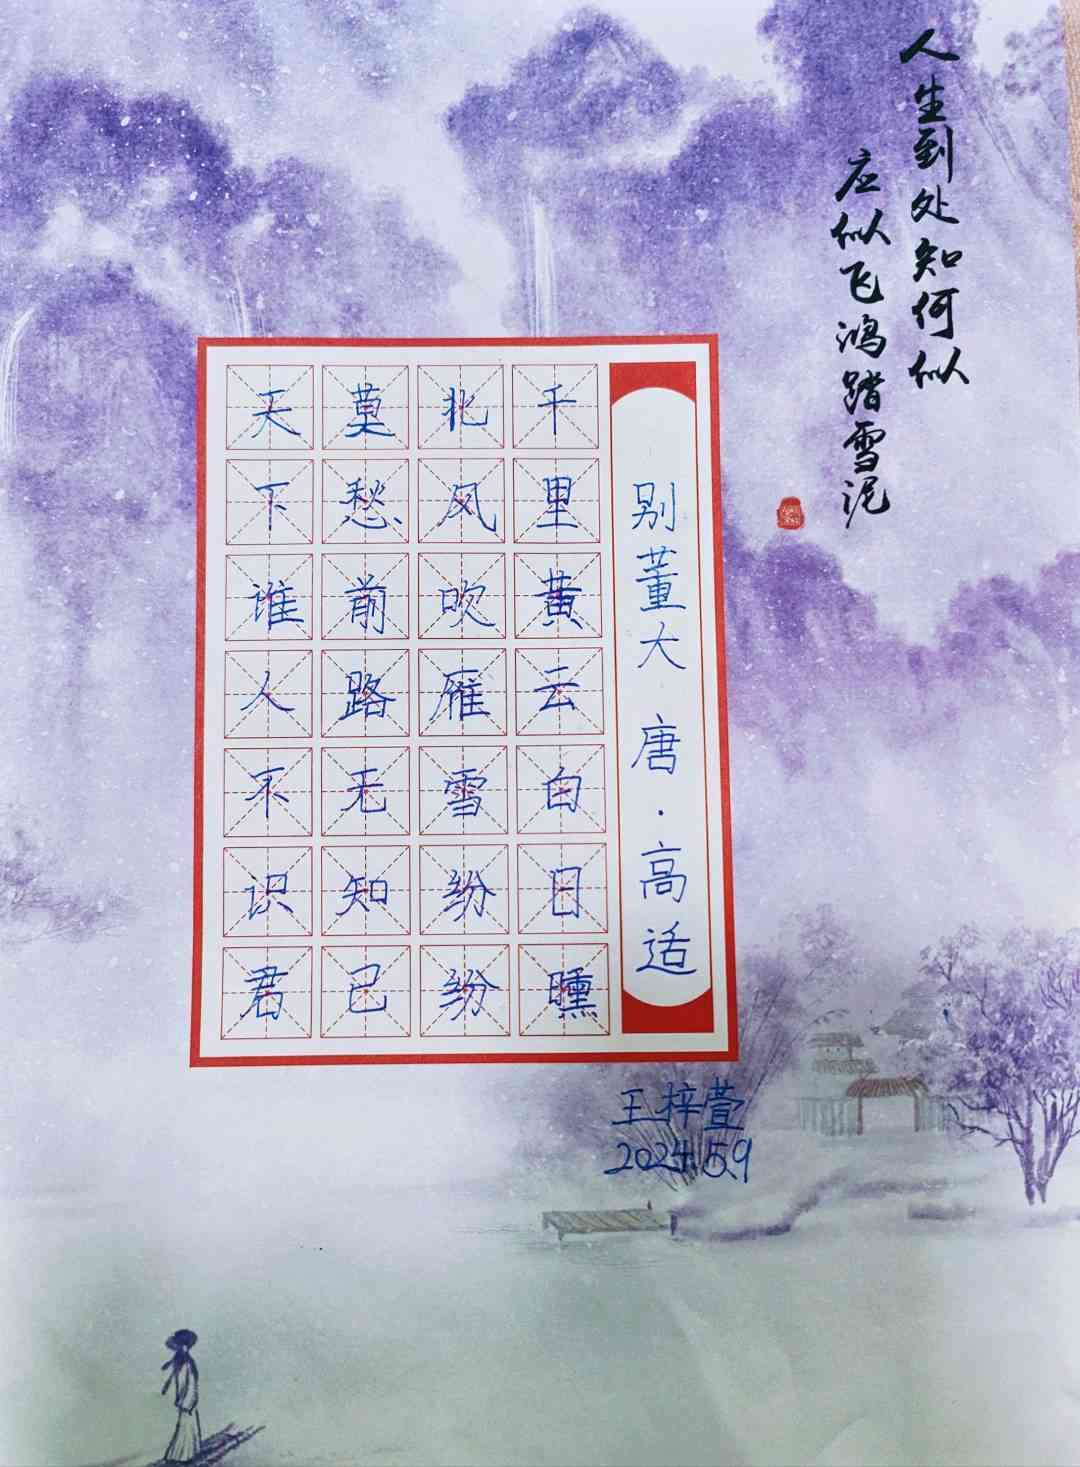 人生到处知何似
应似飞鸿踏雪泥
别董大 唐·高适
千里黄云白日曛
北风吹雁雪纷纷
莫愁前路无知己
天下谁人不识君
王梓萱
2024.5.9